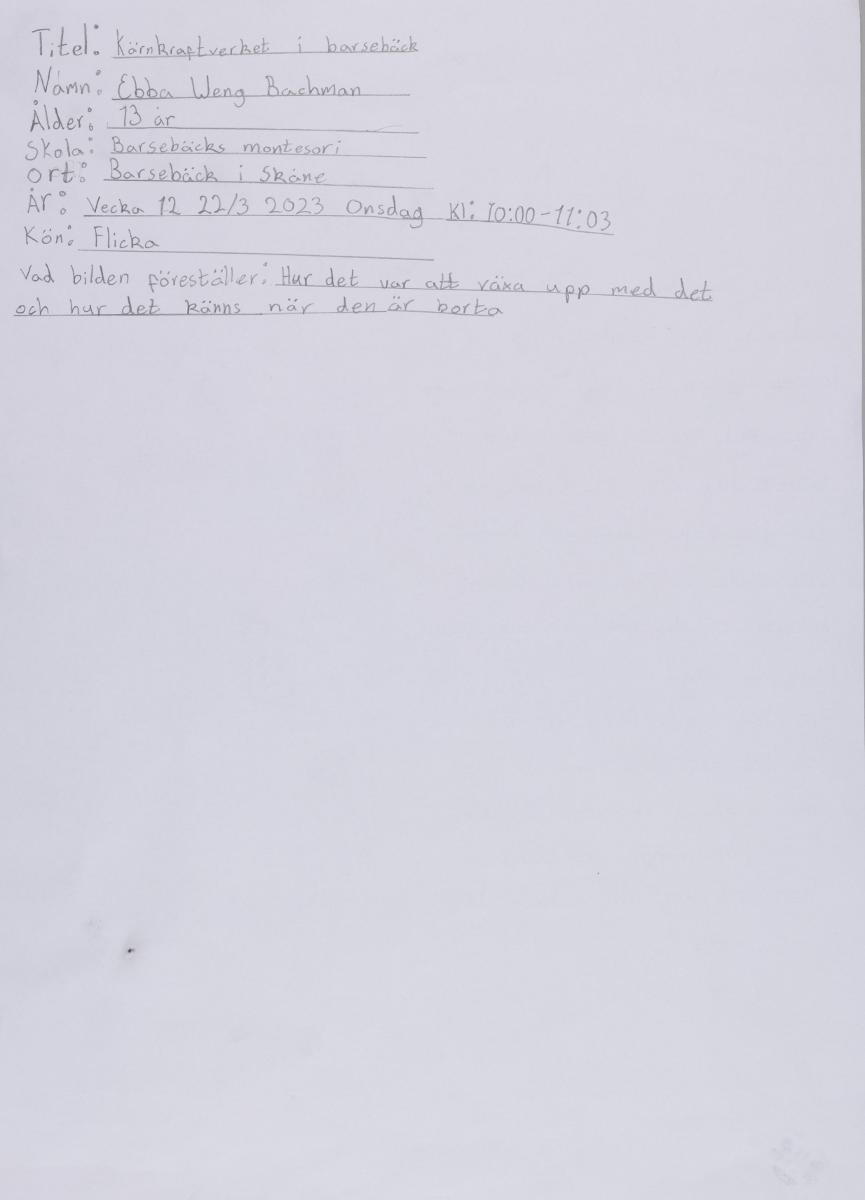 Titel: Kärnkraftverket i barsebäck
Namn: Ebba Weng Bachman
Ålder: 13 år
Skola: Barsebäcks montesori
ort: Barsebäck i Skåne
År: Vecka 12 22/3 2023 Onsdag Kl: 10:00-11:03
Kön: Flicka
Vad bilden föreställer: Hur det var att växa upp med det
och hur det känns när den är borta